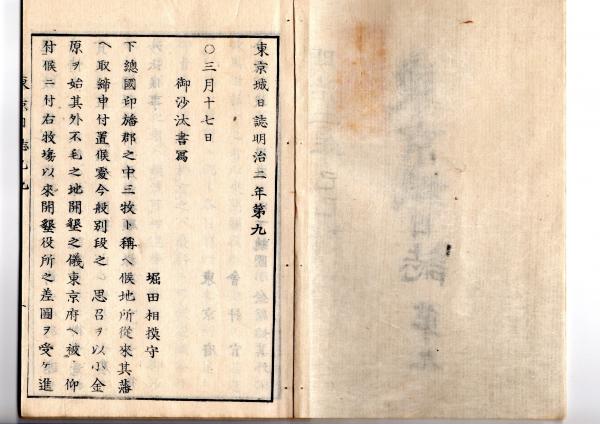 東京城日誌明治二年第九
〇三月十七日
御沙汰書寫
堀田相摸守
下總國印旛郡之中三牧ト稱ヘ候地所從來其藩
ヘ取締申付置候處今般別段之　思召ヲ以小金
原ヲ始其外不毛之地開墾之儀東京府ヘ被　仰
付候ニ付右牧塲以來開墾役所之差圖ヲ受ケ進